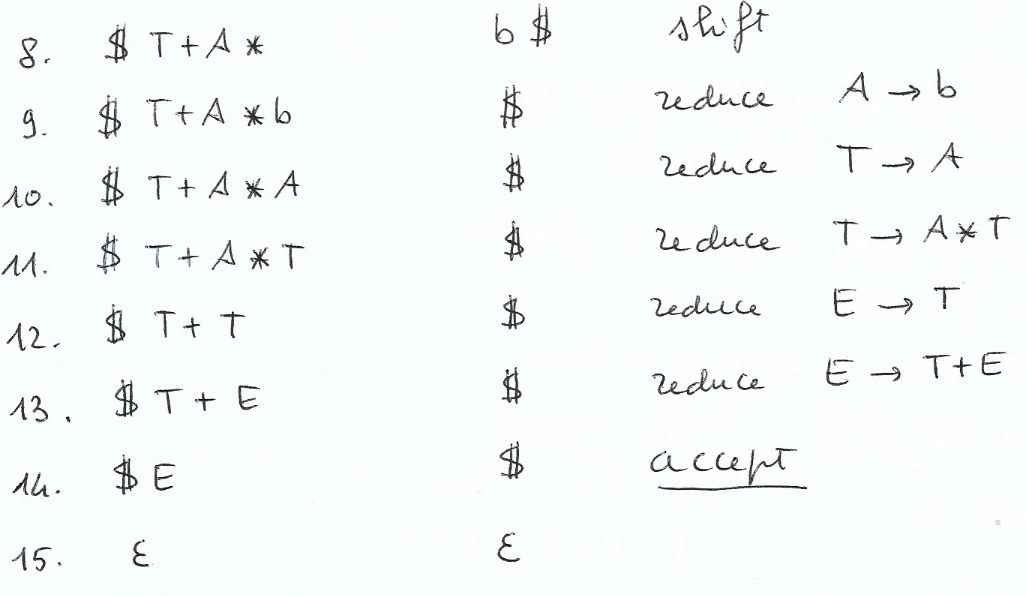 8. $ T+A* b $ shift
9. $ T+A*b $ reduce A → b
10. $ T+A*A $ reduce T → A
11. $ T+A*T $ reduce T → A*T
12. $ T+T $ reduce E → T
13. $ T+E $ reduce E → T+E
14. $ E $ accept
15. ε ε